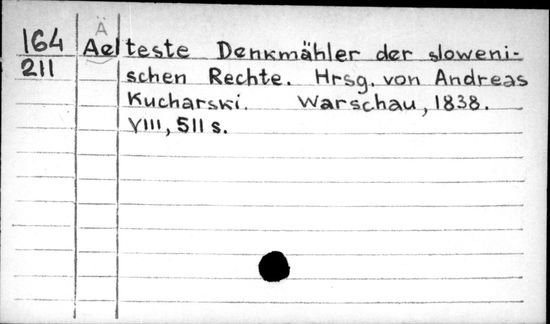 Ä
164 Aelteste Denkmähler der sloweni-
211 schen Rechte. Hrsg. von Andreas
Kucharski. Warschau, 1838.
VIII, 511 s.